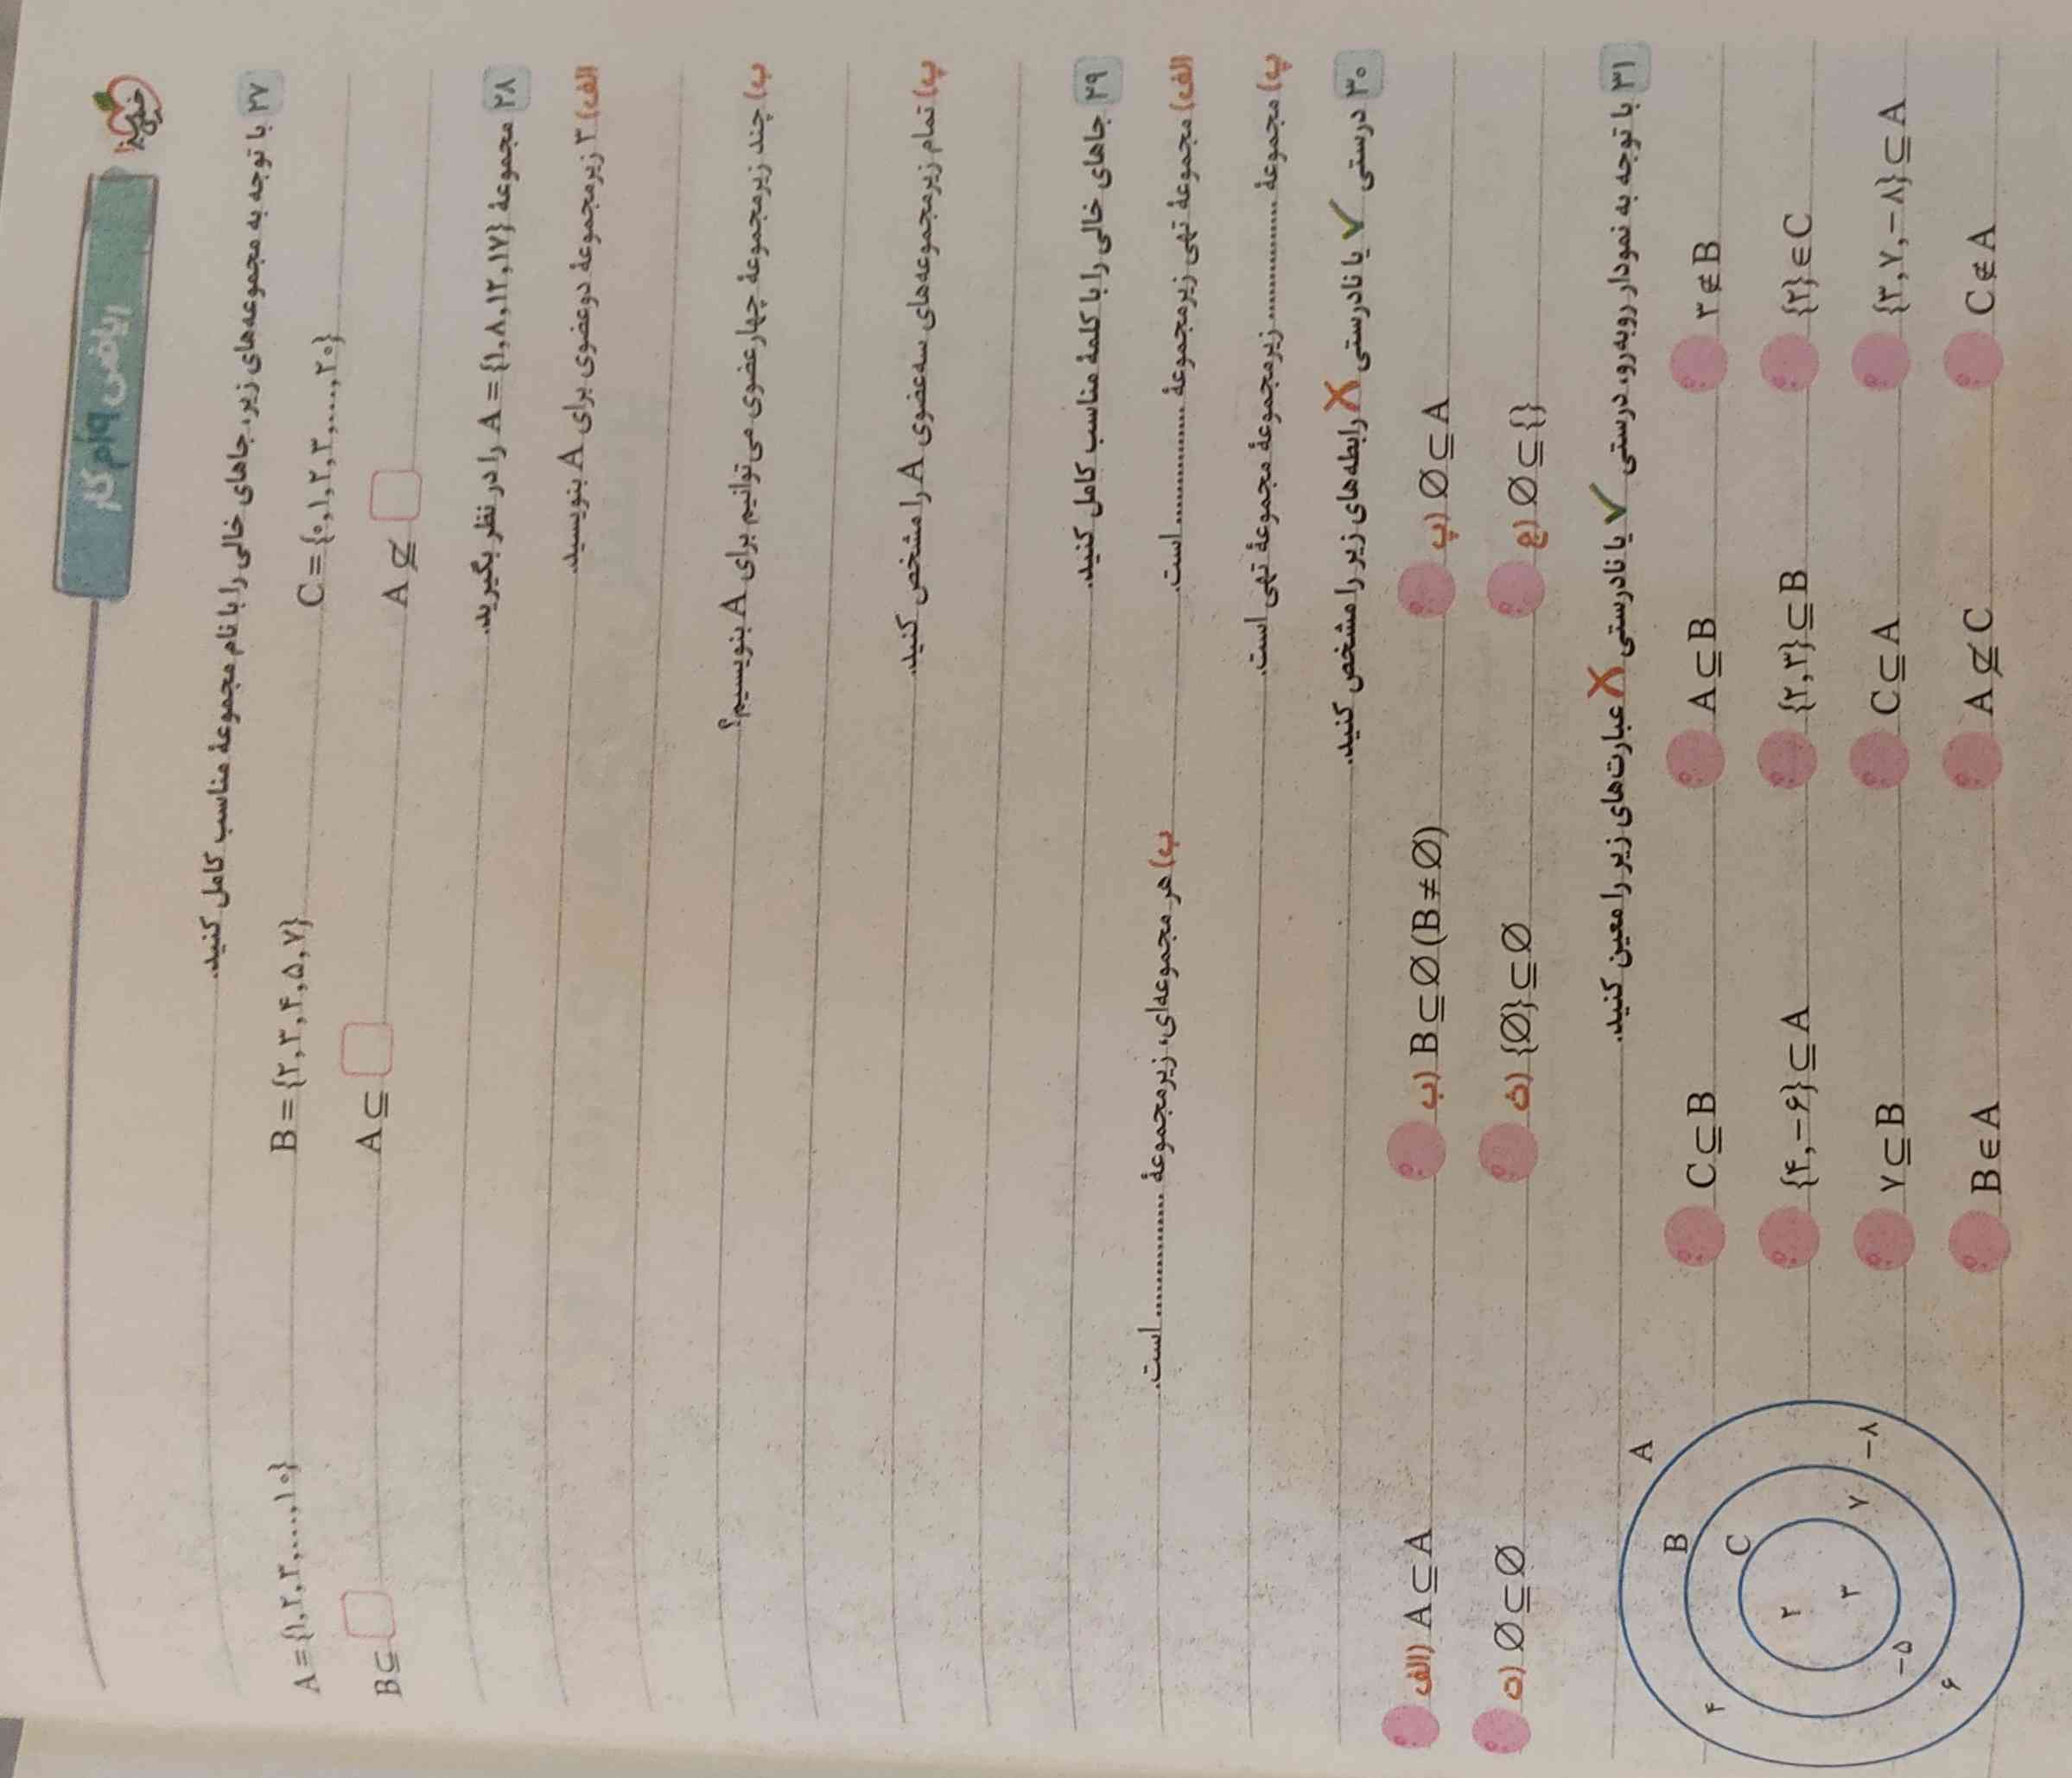 خیلی سبز
ریاضی ۹ اُم کار
۲۷ با توجه به مجموعه‌های زیر، جاهای خالی را با نام مجموعهٔ مناسب کامل کنید.
A={۱,۲,۳,...,۱۰} B={۲,۳,۴,۵,۷} C={۰,۱,۲,۳,...,۲۰}
B⊆ A⊆ A⊈
۲۸ مجموعهٔ A={۱,۸,۱۲,۱۷} را در نظر بگیرید.
الف) ۳ زیرمجموعهٔ دوعضوی برای A بنویسید.
ب) چند زیرمجموعهٔ چهارعضوی می‌توانیم برای A بنویسیم؟
پ) تمام زیرمجموعه‌های سه‌عضوی A را مشخص کنید.
۲۹ جاهای خالی را با کلمهٔ مناسب کامل کنید.
الف) مجموعهٔ تهی زیرمجموعهٔ ............... است. ب) هر مجموعه‌ای، زیرمجموعهٔ ............... است.
پ) مجموعهٔ ............... زیرمجموعهٔ مجموعهٔ تهی است.
۳۰ درستی ✓ یا نادرستی ✗ رابطه‌های زیر را مشخص کنید.
الف) A⊆A ب) B⊆∅(B≠∅) پ) ∅⊆A
ت) ∅⊆∅ ث) {∅}⊆∅ ج) ∅⊆{}
۳۱ با توجه به نمودار روبه‌رو، درستی ✓ یا نادرستی ✗ عبارت‌های زیر را معین کنید.
C⊆B A⊆B ۳∉B
{۴,-۶}⊆A {۲,۳}⊆B {۲}∈C
۷⊆B C⊆A {۳,۷,-۸}⊆A
B∈A A⊈C C∉A
A
B
C
۴ ۲ ۳ ۷ -۸
-۵
۶